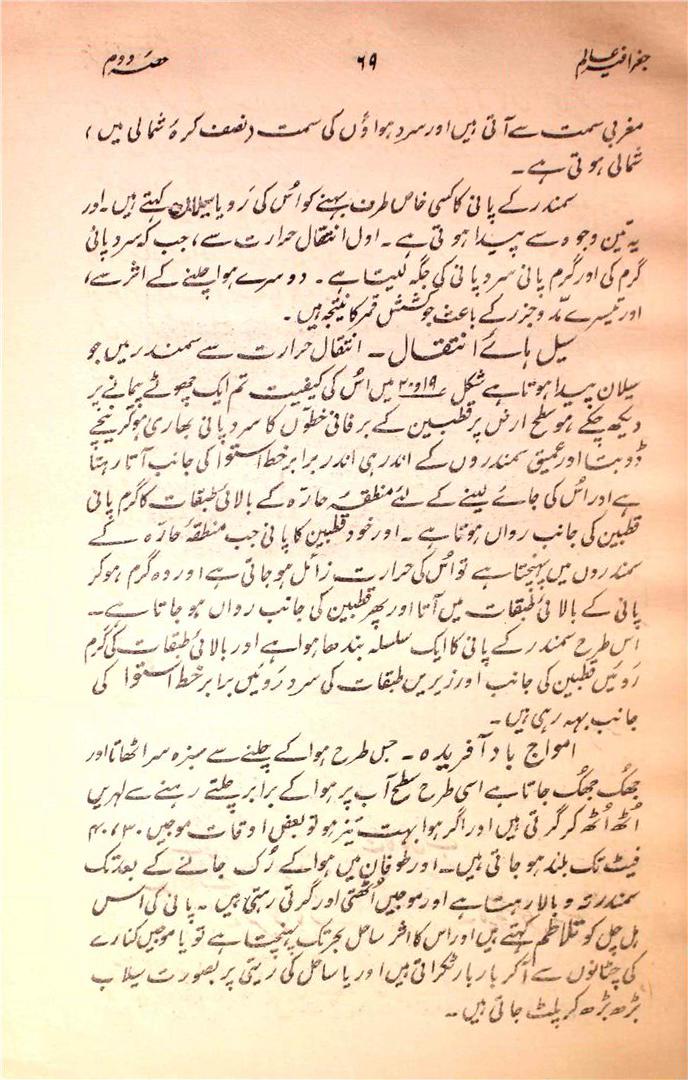 جغرافیہ عالم ۶۹ حصہ دوم
مغربی سمت سے آتی ہیں اور سرد ہواؤں کی سمت (نصف کرۂ شمالی میں)
شمالی ہوتی ہے۔
سمندر کے پانی کا کسی خاص طرف بہنے کو اُس کی رَو یا سیلان کہتے ہیں۔ اور
یہ تین وجوہ سے پیدا ہوتی ہے۔ اول انتقال حرارت سے، جب کہ سرد پانی
گرم کی اور گرم پانی سرد پانی کی جگہ لیتا ہے۔ دوسرے ہوا چلنے کے اثر سے،
اور تیسرے مدّ و جزر کے باعث جو کشش قمر کا نتیجہ ہیں۔
سیل ہائے انتقال۔ انتقال حرارت سے سمندر میں جو
سیلان پیدا ہوتا ہے شکل ۱۹ و ۲۰ میں اُس کی کیفیت تم ایک چھوٹے پیمانے پر
دیکھ چکے ہو سطح ارض پر قطبین کے برفانی خطوں کا سرد پانی بھاری ہو کر نیچے
ڈوبتا اور عمیق سمندروں کے اندر ہی اندر برابر خط استوا کی جانب آتا رہتا
ہے اور اُس کی جائے لینے کے لئے منطقۂ حارّہ کے بالائی طبقات کا گرم پانی
قطبین کی جانب رواں ہوتا ہے۔ اور خود قطبین کا پانی جب منطقۂ حارّہ کے
سمندروں میں پہنچتا ہے تو اُس کی حرارت زائل ہو جاتی ہے اور وہ گرم ہو کر
پانی کے بالائی طبقات میں آتا اور پھر قطبین کی جانب رواں ہو جاتا ہے۔
اس طرح سمندر کے پانی کا ایک سلسلہ بندھا ہوا ہے اور بالائی طبقات کی گرم
رَوئیں قطبین کی جانب اور زیریں طبقات کی سرد رَوئیں برابر خط استوا کی
جانب بہہ رہی ہیں۔
امواج باد آفریدہ۔ جس طرح ہوا کے چلنے سے سبزہ سر اٹھاتا اور
جھُک جھُک جاتا ہے اسی طرح سطح آب پر ہوا کے برابر چلتے رہنے سے لہریں
اُٹھ اُٹھ کر گرتی ہیں اور اگر ہوا بہت تیز ہو تو بعض اوقات موجیں ۳۰، ۴۰
فیٹ تک بلند ہو جاتی ہیں۔ اور طوفان میں ہوا کے رُک جانے کے بعد تک
سمندر تہ و بالا رہتا ہے اور موجیں اُٹھتی اور گرتی رہتی ہیں۔ پانی کی اس
ہل چل کو تلاطم کہتے ہیں اور اس کا اثر ساحل بحر تک پہنچتا ہے تو یا موجیں کنارے
کی چٹانوں سے آ کر بار بار ٹکراتی ہیں اور یا ساحل کی ریتی پر بصورت سیلاب
بڑھ بڑھ کر پلٹ جاتی ہیں۔